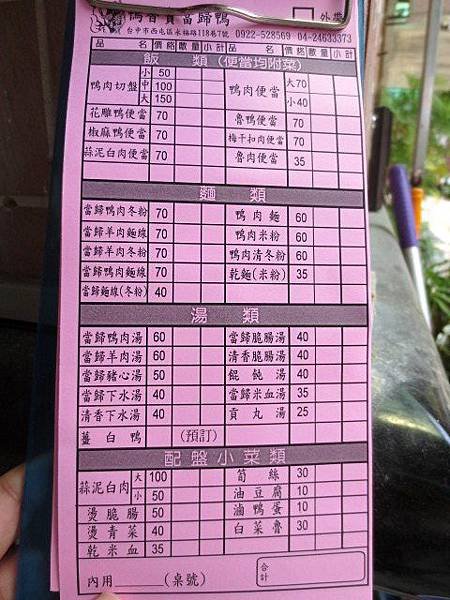 鴨香寶當歸鴨
外帶
台中市西屯區永福路118巷7號 0922-528569 04-24633373
品名 價格 數量 小計 品名 價格 數量 小計
飯 類 (便當均附菜)
鴨肉切盤 小 50 鴨肉便當 大70
中 100
大 150 小40
花雕鴨便當 70 魯鴨便當 70
椒麻鴨便當 70 梅干扣肉便當 70
蒜泥白肉便當 70 魯肉便當 35
麵 類
當歸鴨肉冬粉 70 鴨肉麵 60
當歸羊肉麵線 70 鴨肉米粉 60
當歸羊肉冬粉 70 鴨肉清冬粉 60
當歸鴨肉麵線 70 乾麵(米粉) 35
當歸麵線(冬粉) 40
湯 類
當歸鴨肉湯 60 當歸脆腸湯 40
當歸羊肉湯 60 清香脆腸湯 40
當歸豬心湯 50 餛飩湯 40
當歸下水湯 40 當歸米血湯 35
清香下水湯 40 貢丸湯 25
薑白鴨 (預訂)
配盤小菜類
蒜泥白肉 大 100 筍絲 30
小 50 油豆腐 10
燙脆腸 50 滷鴨蛋 10
燙青菜 40 白菜魯 30
乾米血 35
內用 (桌號) 合計